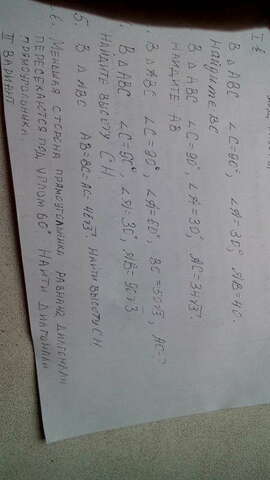 I в
В △ ABC ∠C=90°, ∠A=30°, AB=40
Найдите BC
В △ ABC ∠C=90°, ∠A=30°, AC=34√3.
НАЙДИТЕ AB
В △ABC ∠C=90°, ∠A=60°, BC=50√3, AC-?
В △ABC ∠C=90°, ∠A=30°, AB=96√3
НАЙДИТЕ ВЫСОТУ CH
5. В △ ABC AB=BC=AC=48√3. НАЙТИ ВЫСОТУ CH
6. МЕНЬШАЯ СТОРОНА ПРЯМОУГОЛЬНИКА РАВНА ДИАГОНАЛИ
ПЕРЕСЕКАЮТСЯ ПОД УГЛОМ 60° НАЙТИ ДИАГОНАЛИ
ПРЯМОУГОЛЬНИКА
II ВАРИАНТ